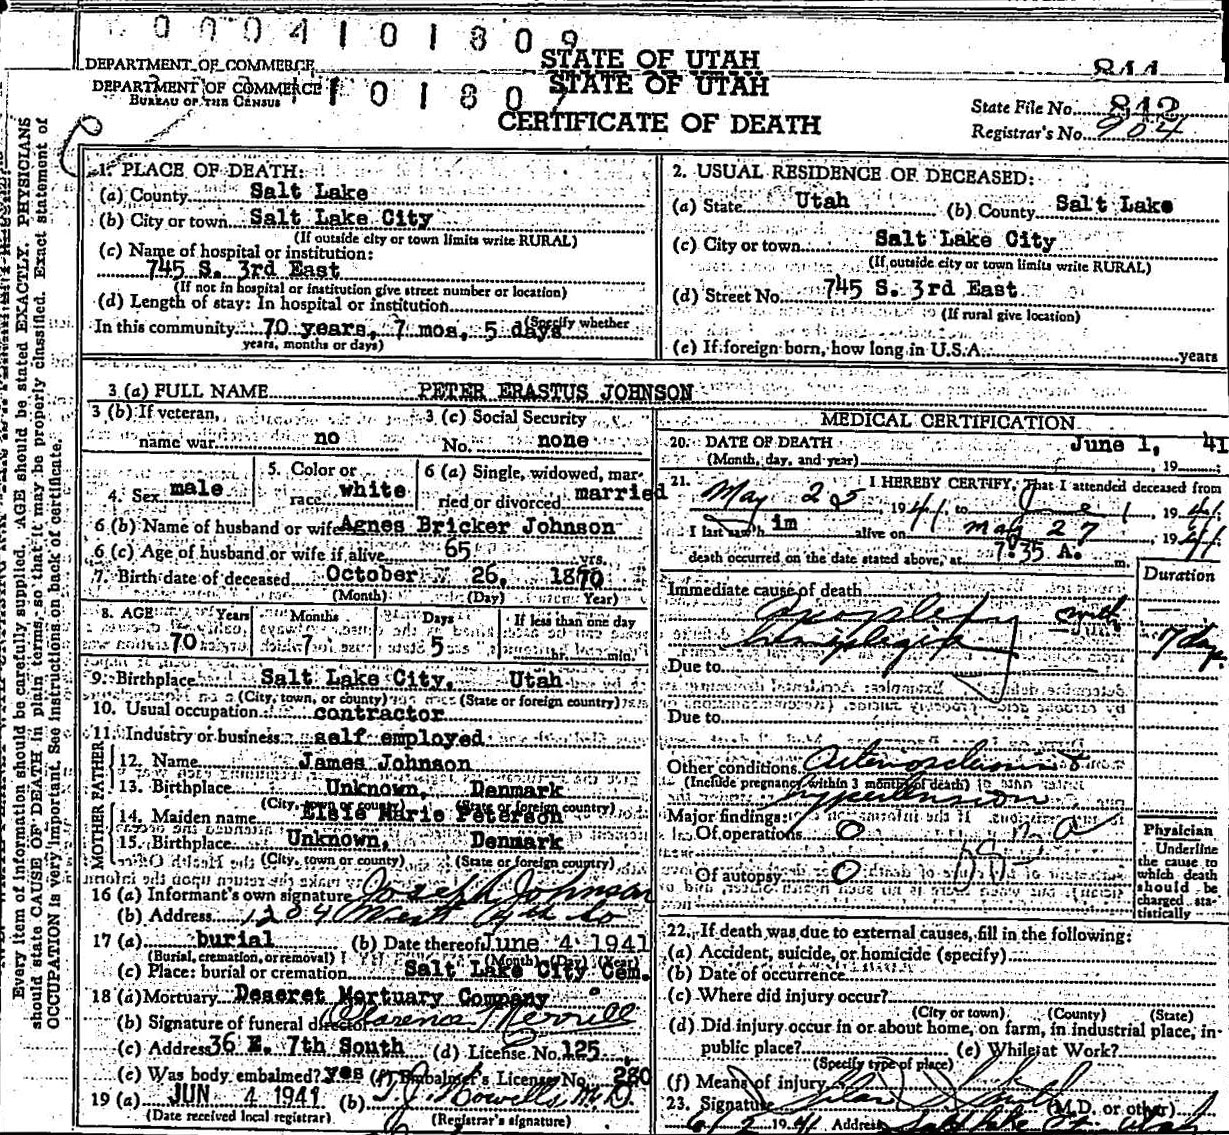 0004101809
STATE OF UTAH
DEPARTMENT OF COMMERCE
811
DEPARTMENT OF COMMERCE
STATE OF UTAH
BUREAU OF THE CENSUS
State File No. 812
CERTIFICATE OF DEATH
Registrar's No. 904
Every item of information should be carefully supplied. AGE should be stated EXACTLY. PHYSICIANS
should state CAUSE OF DEATH in plain terms, so that it may be properly classified. Exact statement of
OCCUPATION is very important. See instructions on back of certificate.
1. PLACE OF DEATH:
(a) County Salt Lake
(b) City or town Salt Lake City
(If outside city or town limits write RURAL)
(c) Name of hospital or institution:
745 S. 3rd East
(If not in hospital or institution give street number or location)
(d) Length of stay: In hospital or institution
(Specify whether
In this community 70 years, 7 mos, 5 days
years, months or days)
2. USUAL RESIDENCE OF DECEASED:
(a) State Utah (b) County Salt Lake
(c) City or town Salt Lake City
(If outside city or town limits write RURAL)
(d) Street No. 745 S. 3rd East
(If rural give location)
(e) If foreign born, how long in U.S.A. years
3 (a) FULL NAME PETER ERASTUS JOHNSON
3 (b) If veteran, 3 (c) Social Security
name war no No. none
4. Sex male 5. Color or race white 6 (a) Single, widowed, married or divorced married
6 (b) Name of husband or wife Agnes Bricker Johnson
6 (c) Age of husband or wife if alive 65 yrs.
7. Birth date of deceased October 26, 1870
(Month) (Day) Year)
8. AGE Years Months Days If less than one day
70 7 5 hr. min.
9. Birthplace Salt Lake City, Utah
(City, town, or county) (State or foreign country)
10. Usual occupation contractor
11. Industry or business self employed
FATHER
12. Name James Johnson
13. Birthplace Unknown, Denmark
(City, town or county) (State or foreign country)
MOTHER
14. Maiden name Elsie Marie Peterson
15. Birthplace Unknown, Denmark
(City, town or county) (State or foreign country)
16 (a) Informant's own signature Joseph Johnson
(b) Address 1204 West 4th So
17 (a) burial (b) Date thereof June 4 1941
(Burial, cremation, or removal) (Month) (Day) (Year)
(c) Place: burial or cremation Salt Lake City Cem.
18 (a) Mortuary Deseret Mortuary Company
(b) Signature of funeral director Clarence Merrill
(c) Address 36 E. 7th South (d) License No. 125
(e) Was body embalmed? yes (f) Embalmer's License No. 280
19 (a) JUN 4 1941 (b) T. J. Howells M.D.
(Date received local registrar) (Registrar's signature)
MEDICAL CERTIFICATION
20. DATE OF DEATH June 1, 41
(Month, day, and year) , 19
21. I HEREBY CERTIFY, That I attended deceased from
May 25, 1941, to June 1, 1941
I last saw h im alive on May 27 1941
death occurred on the date stated above, at 7:35 A. m.
Duration
Immediate cause of death
apoplexy with
hemiplegia 7 days
Due to
Due to
Other conditions Arteriosclerosis &
(Include pregnancy within 3 months of death)
hypertension
Major findings:
Of operations 0
Of autopsy 0
Physician
Underline
the cause to
which death
should be
charged sta-
tistically
22. If death was due to external causes, fill in the following:
(a) Accident, suicide, or homicide (specify)
(b) Date of occurrence
(c) Where did injury occur?
(City or town) (County) (State)
(d) Did injury occur in or about home, on farm, in industrial place, in
public place? (e) While at Work?
(Specify type of place)
(f) Means of injury
23. Signature (M.D. or other)
6/2 1941 Address Salt Lake City Utah